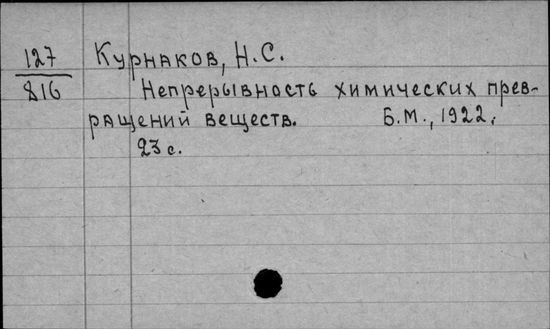 127 Курнаков, Н.С.
816 Непрерывность химических прев-
ращений веществ. Б.М., 1922.
23 с.